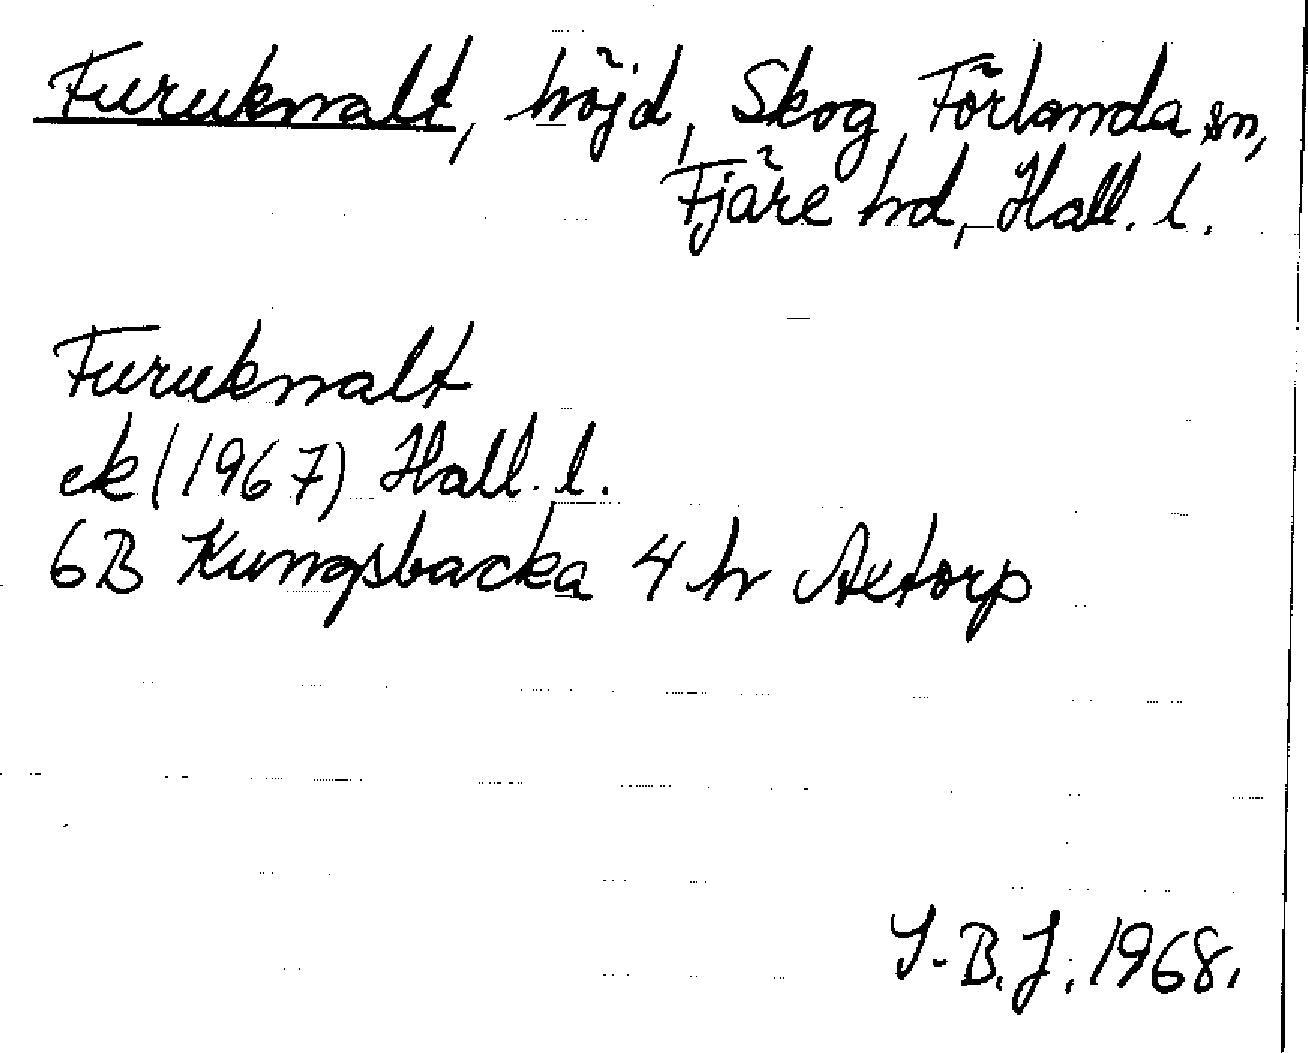 Furuknalt, höjd, Skog, Förlanda sn,
Fjäre hd, Hall. l.
Furuknalt
ek (1967) Hall. l.
6B Kungsbacka 4 h Axtorp
I-B.J. 1968.